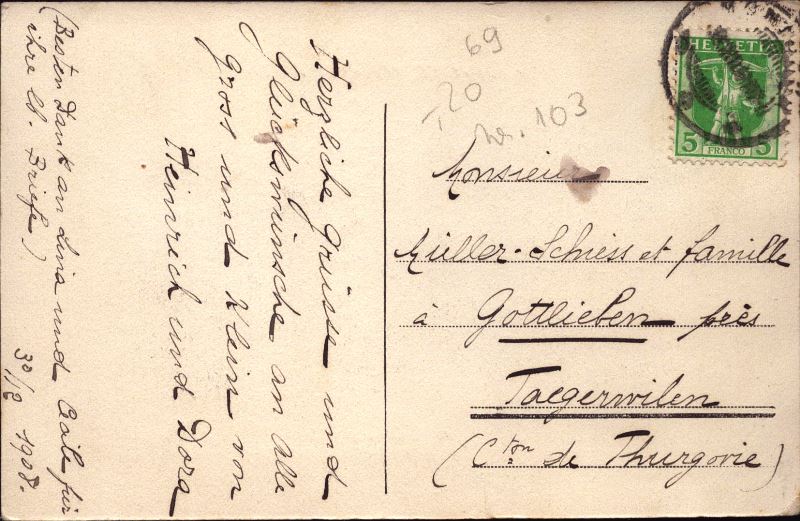 Herzliche Grüsse und
Glückswünsche an Alle
Gross und Klein von
Heinrich und Dora
(Besten Dank an Lina und Cécile für
ihre lb. Briefe)
30/12 1908.
69
20
No. 103
HELVETIA
5 FRANCO 5
Monsieur
Müller-Schiess et famille
à Gottlieben près
Taegerwilen
(Cton de Thurgovie)